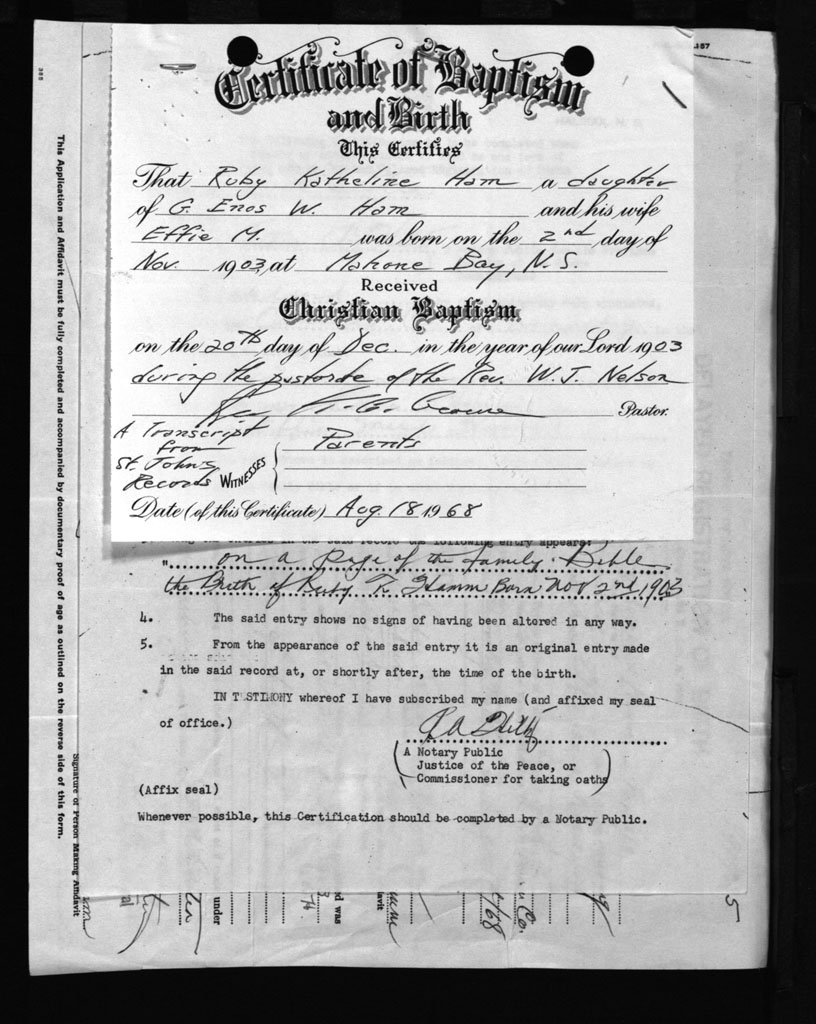 Certificate of Baptism
and Birth
This Certifies
That Ruby Katheline Ham a daughter
of G. Enos W. Ham and his wife
Effie M. was born on the 2nd day of
Nov. 1903, at Mahone Bay, N.S.
Received
Christian Baptism
on the 20th day of Dec. in the year of our Lord 1903
during the pastorate of the Rev. W. J. Nelson
Pastor.
A Transcript
from
St. John's
Records
WITNESSES
Parents
Date (of this Certificate) Aug. 18 1968
entry appears:
"on a page of the family Bible
the Birth of Ruby K. Hamm Born Nov 2nd 1903
4. The said entry shows no signs of having been altered in any way.
5. From the appearance of the said entry it is an original entry made
in the said record at, or shortly after, the time of the birth.
IN TESTIMONY whereof I have subscribed my name (and affixed my seal
of office.)
(A Notary Public
Justice of the Peace, or
Commissioner for taking oaths)
(Affix seal)
Whenever possible, this Certification should be completed by a Notary Public.
This Application and Affidavit must be fully completed and accompanied by documentary proof of age as outlined on the reverse side of this form.
Signature of Person Making Affidavit
under
was
Co.
/68
5